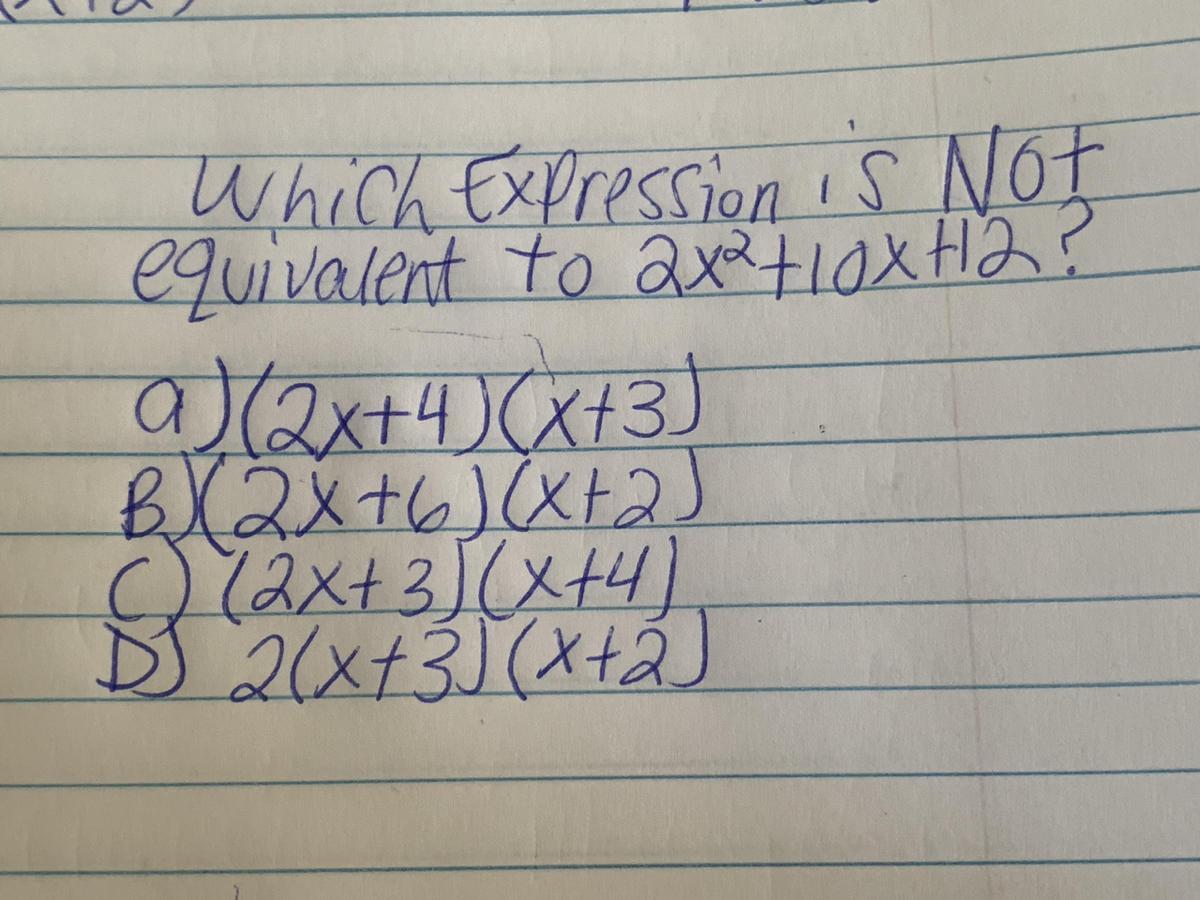 Which Expression is Not
equivalent to 2x²+10x+12?
a)(2x+4)(x+3)
B)(2x+6)(x+2)
C) (2x+3)(x+4)
D) 2(x+3)(x+2)